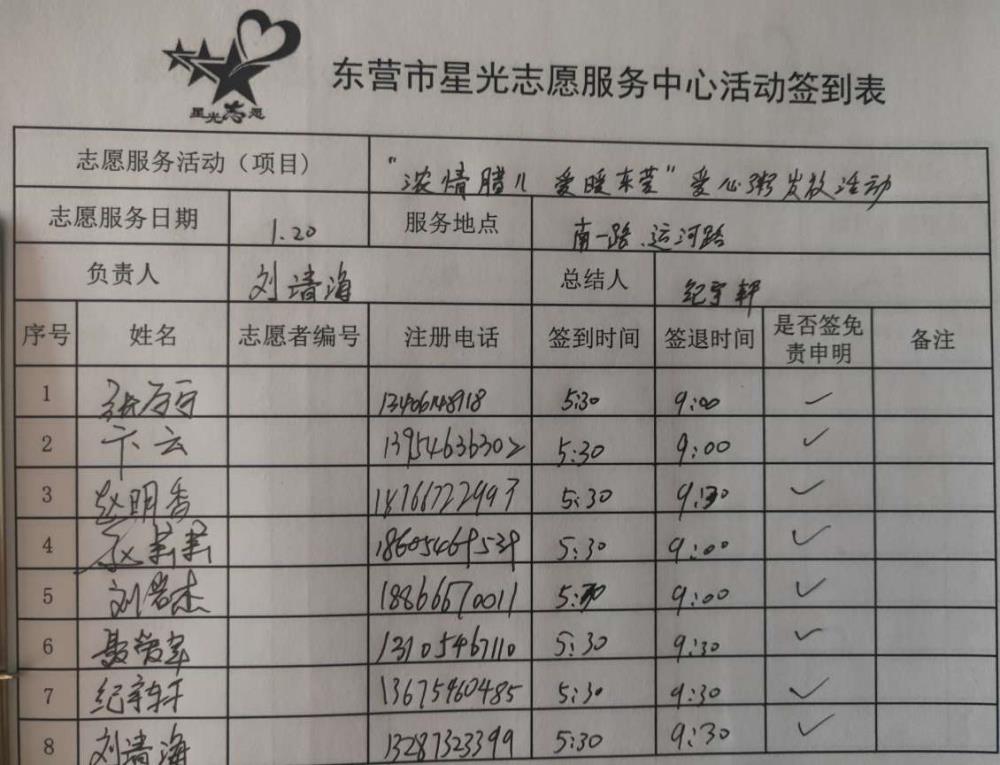 星光志愿
东营市星光志愿服务中心活动签到表
志愿服务活动（项目） “浓情腊八 爱暖东营”爱心粥发放活动
志愿服务日期 1.20 服务地点 南一路、运河路
负责人 刘清海 总结人 纪宇轩
序号 姓名 志愿者编号 注册电话 签到时间 签退时间 是否签免责申明 备注
1 张丽 5:30 9:00 ✓
2 卞云 13954636302 5:30 9:00 ✓
3 赵明香 18766722993 5:30 9:30 ✓
4 18605469539 5:30 9:00 ✓
5 刘岩杰 18866670011 5:30 9:00 ✓
6 聂荣军 13105467110 5:30 9:30 ✓
7 纪宇轩 13675460485 5:30 9:30 ✓
8 刘清海 13287323399 5:30 9:30 ✓